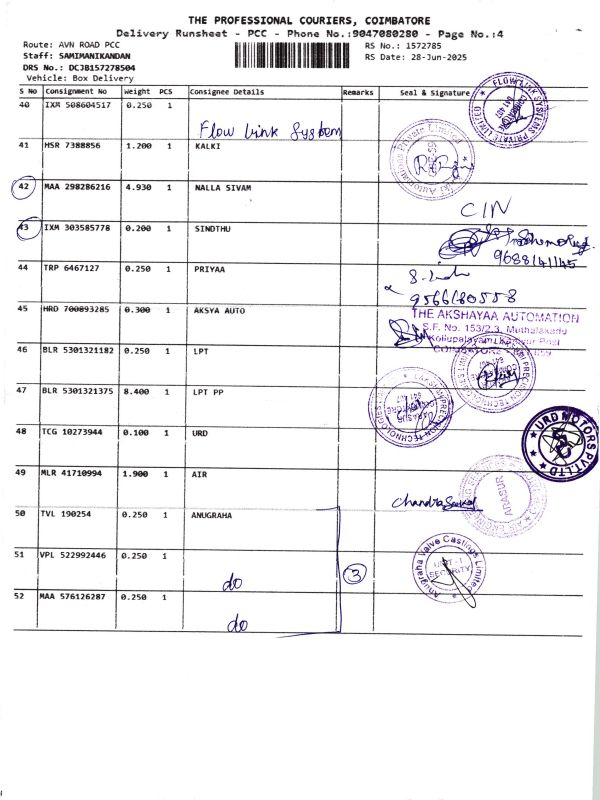 THE PROFESSIONAL COURIERS, COIMBATORE
Delivery Runsheet - PCC - Phone No.:9047080280 - Page No.:4
Route: AVN ROAD PCC
RS No.: 1572785
Staff: SAMIMANIKANDAN
RS Date: 28-Jun-2025
DRS No.: DCJB157278504
Vehicle: Box Delivery
S No Consignment No Weight PCS Consignee Details Remarks Seal & Signature
40 IXM 508604517 0.250 1
Flow Link System
FLOW LINK SYSTEMS PRIVATE LIMITED
641 407
41 HSR 7388856 1.200 1 KALKI
Automations Private Limited
42 MAA 298286216 4.930 1 NALLA SIVAM
CIN
43 IXM 303585778 0.200 1 SINDTHU
9688141145
44 TRP 6467127 0.250 1 PRIYAA
9566680558
45 HRD 700893285 0.300 1 AKSYA AUTO
THE AKSHAYAA AUTOMATION
S.F. No. 153/2,3, Muthalakadu
46 BLR 5301321182 0.250 1 LPT
47 BLR 5301321375 8.400 1 LPT PP
48 TCG 10273944 0.100 1 URD
URD MOTORS PVT.LTD
49 MLR 41710994 1.900 1 AIR
ARASUR
50 TVL 190254 0.250 1 ANUGRAHA
51 VPL 522992446 0.250 1
do
3
Anugraha Valve Castings Limited
UNIT - I
SECURITY
52 MAA 576126287 0.250 1
do